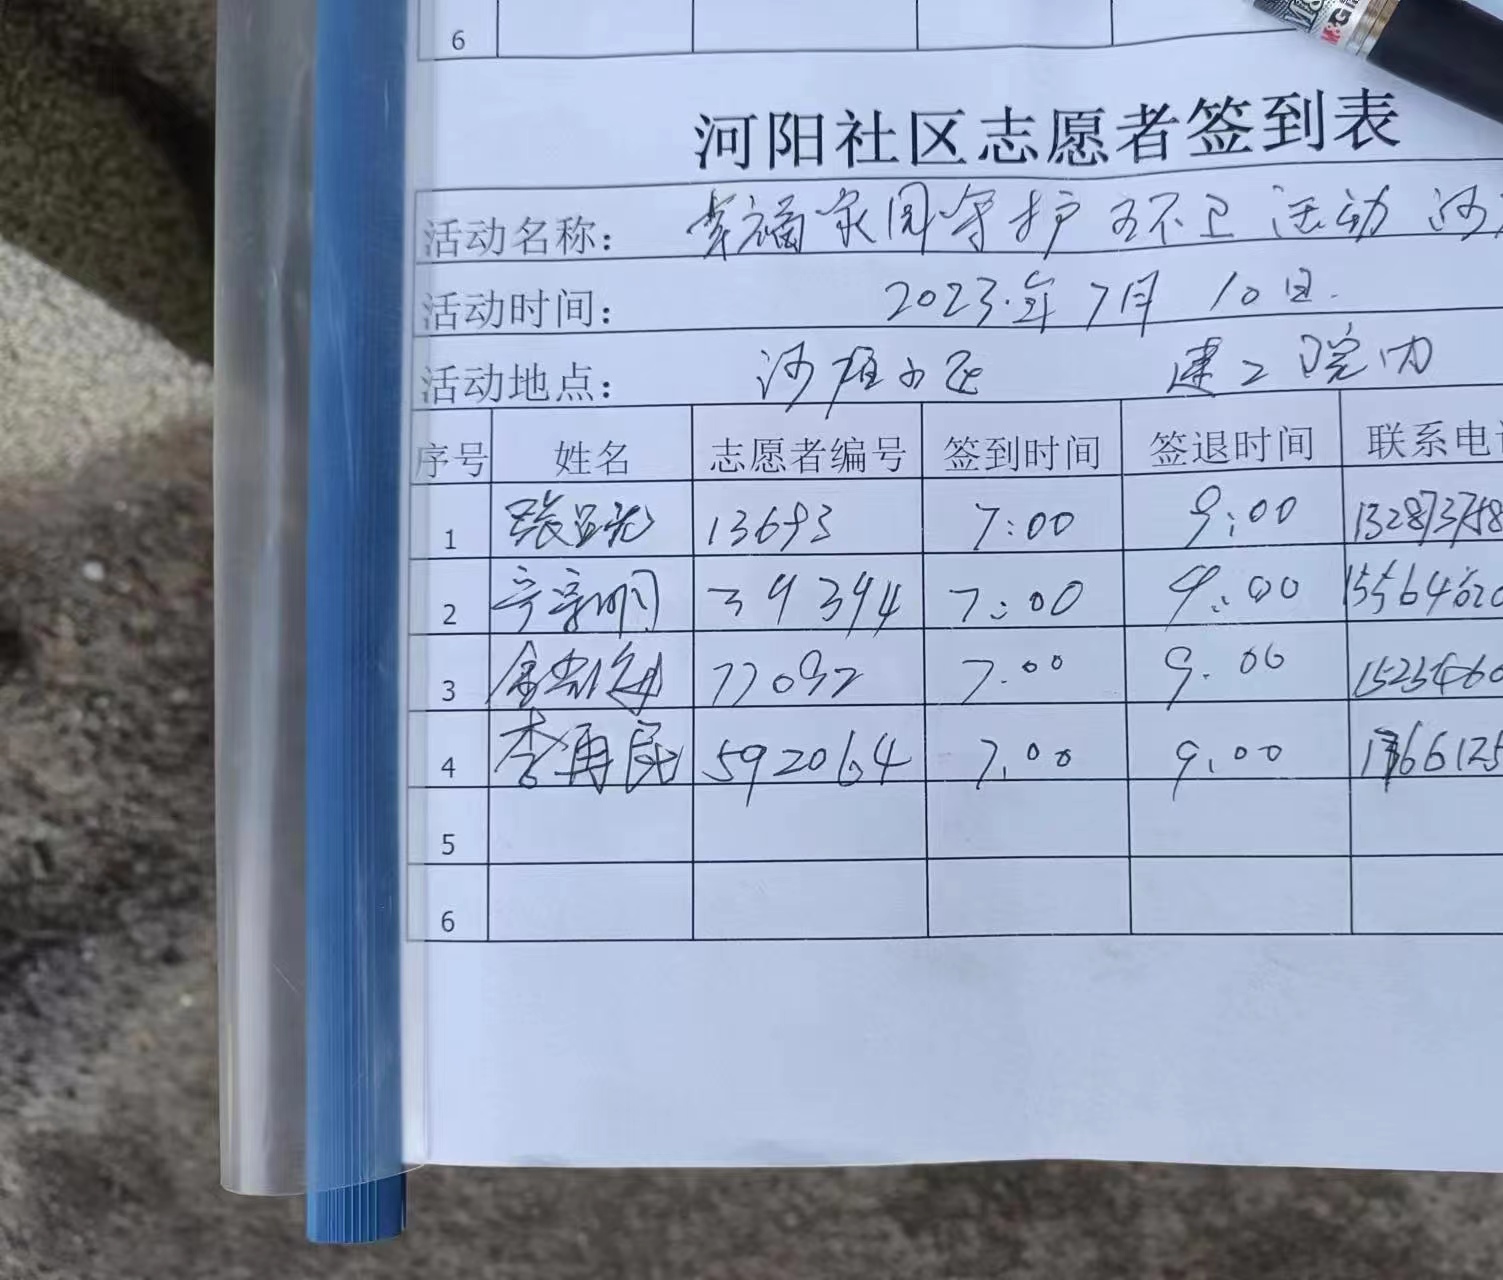 6
M&G
河阳社区志愿者签到表
活动名称： 幸福家园守护 环卫 活动 沙
活动时间： 2023.年 7月 10日.
活动地点： 沙 小区 建工院内
序号 姓名 志愿者编号 签到时间 签退时间 联系电
1 张显 13693 7:00 9:00 132873758
2 39394 7:00 9:00 15564620
3 77092 7.00 9.00 15254660
4 李再民 592064 7.00 9.00 1766125
5
6